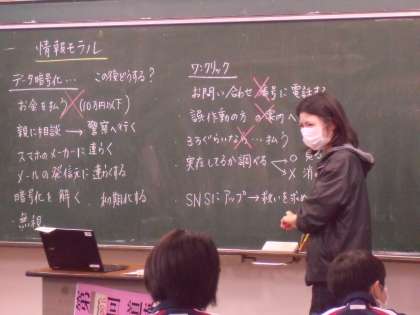 情報モラル
データ暗号化… この後どうする?
お金を払う (10万円以下)
親に相談 → 警察へ行く
スマホのメーカーに連らく
メールの発信元に連らくする
暗号化を解く 初期化する
無視
ワンクリック
お問い合わせ 番号に電話する
誤作動の方の案内へ
3万ぐらいなら…払う
実在してるか調べる
SNSにアップ→救いを求め
第 回